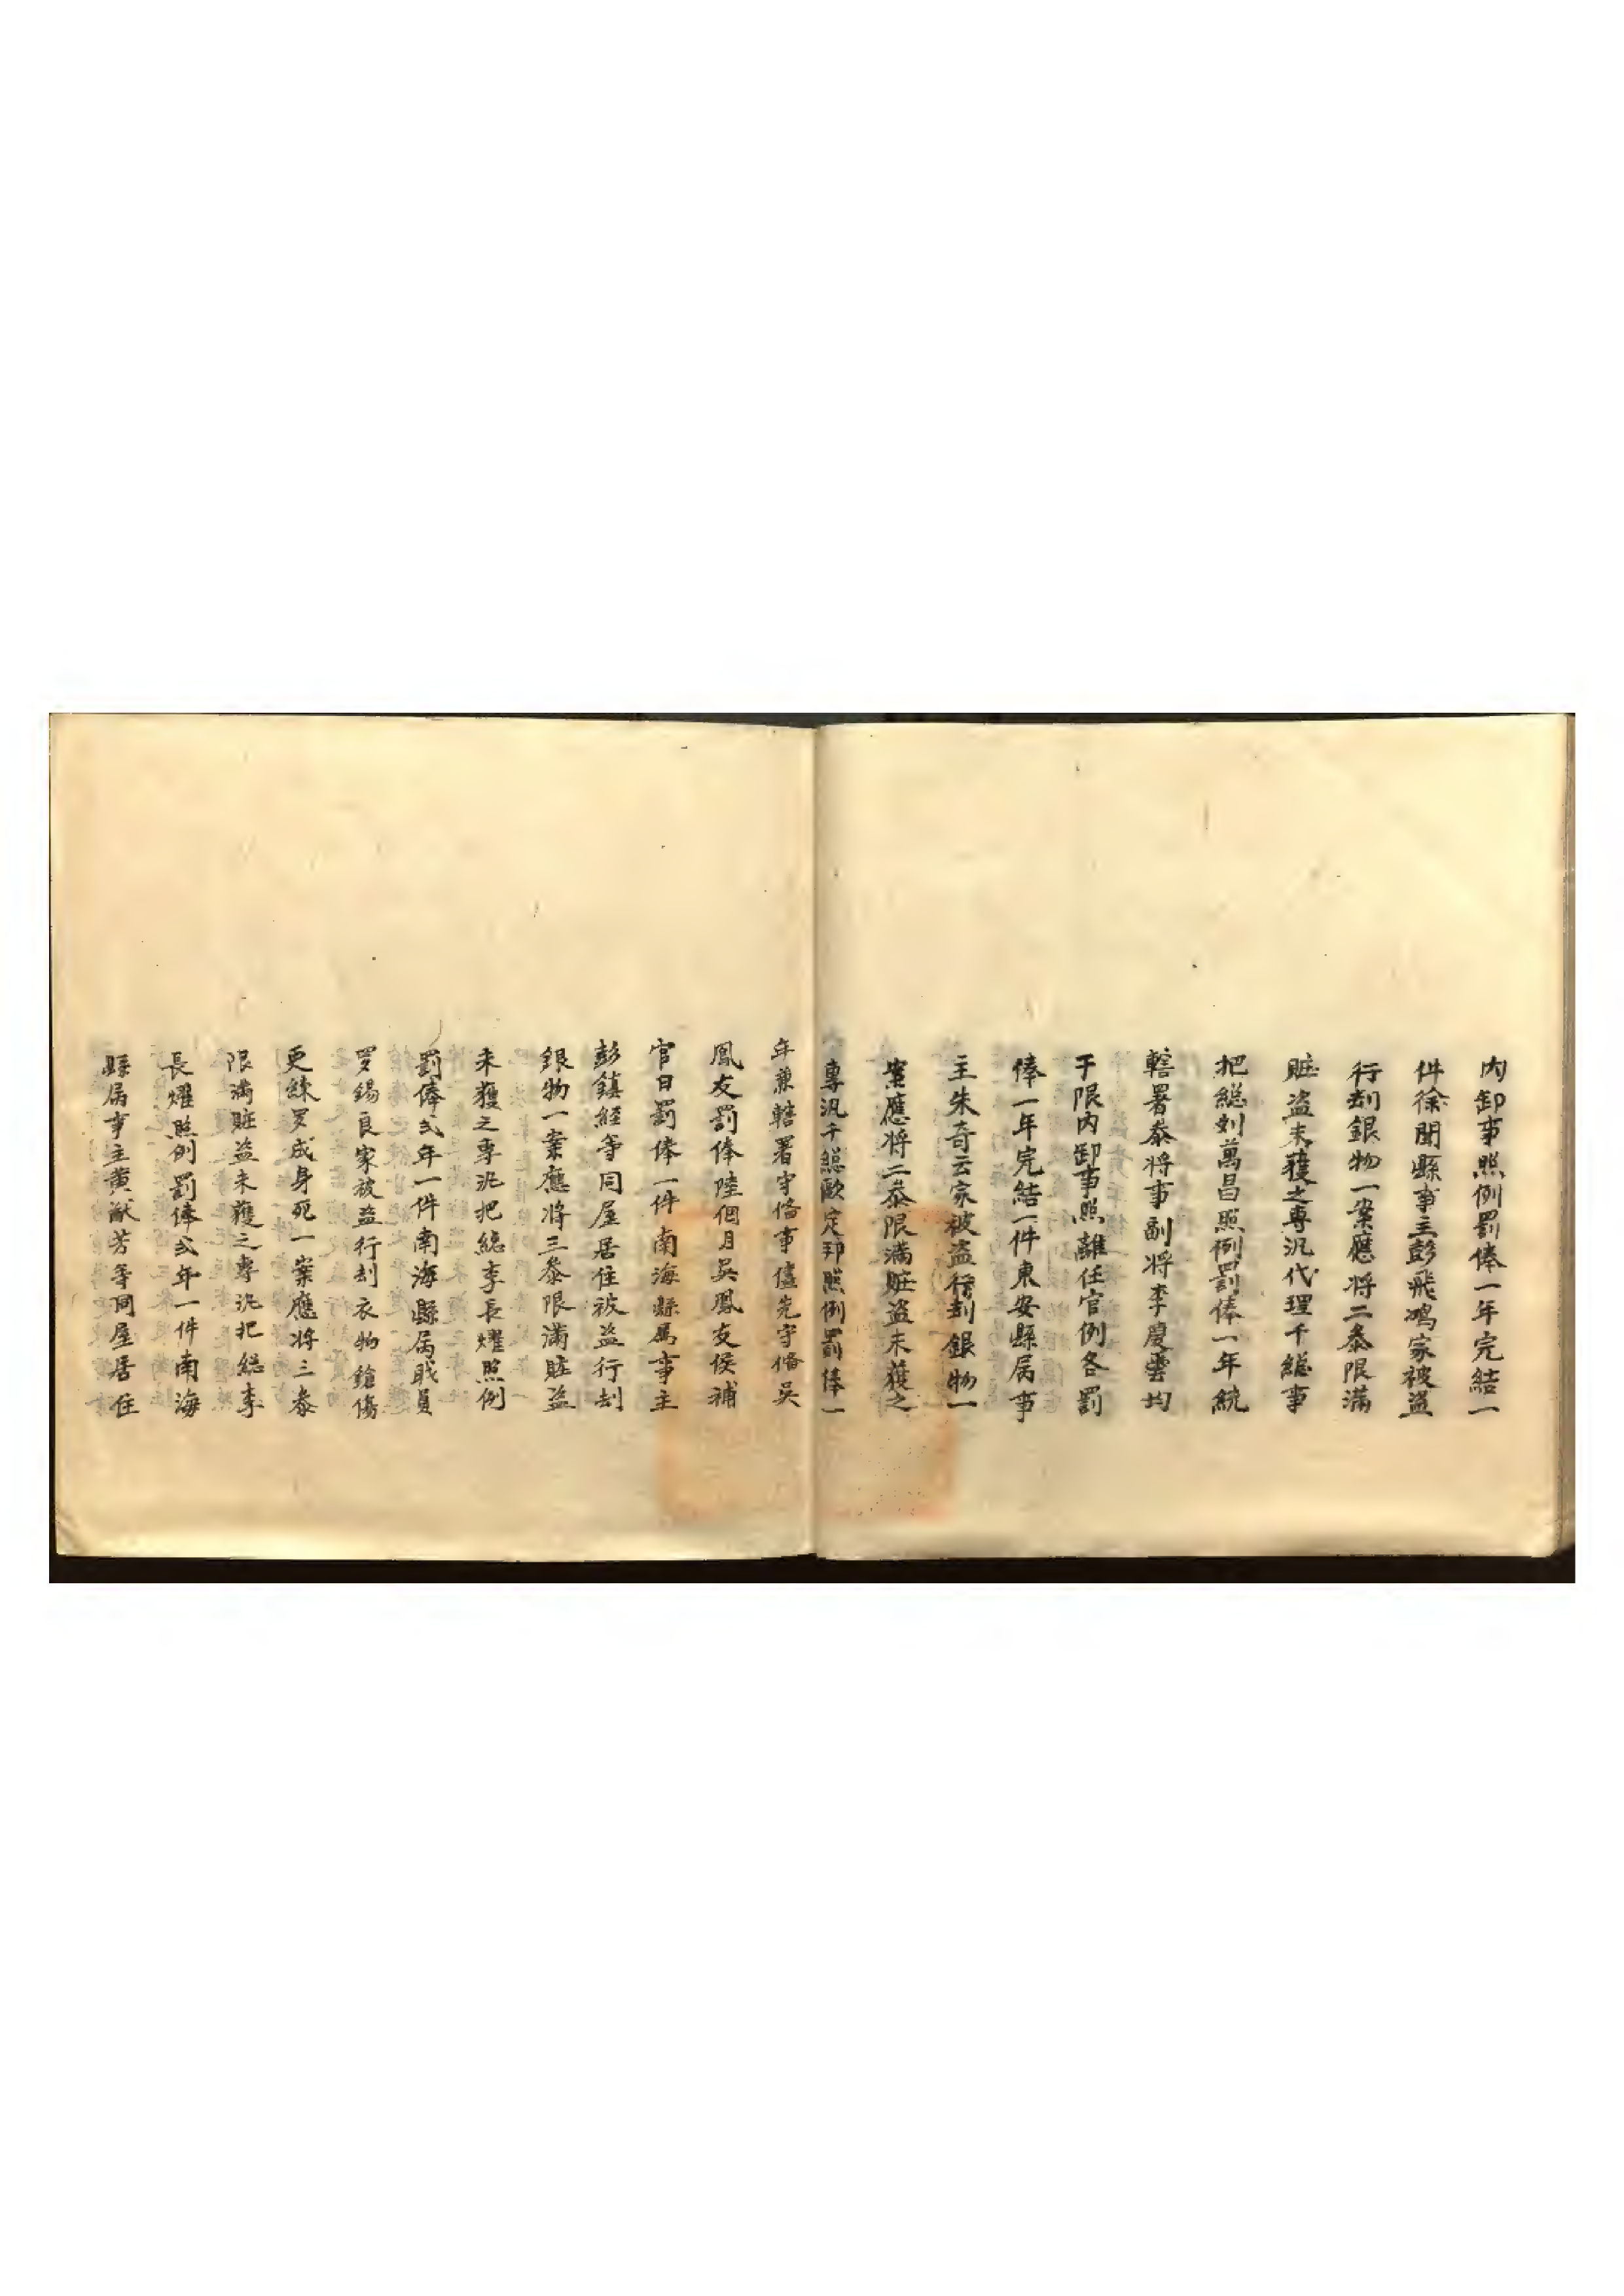 內卸事照例罰俸一年完結一
件徐聞縣事主彭飛鴻家被盜
行刦銀物一案應將二叅限滿
賍盜未獲之專汛代理千総事
把総刘萬昌照例罰俸一年統
轄署叅將事副將李慶雲均
于限內卸事照離任官例各罰
俸一年完結一件東安縣属事
主朱奇云家被盜行刦銀物一
案應將二叅限滿賍盜未獲之
專汛千総歐定邦照例罰俸一
年兼轄署守俻事儘先守俻吳
鳳友罰俸陸個月吳鳳友侯補
官日罰俸一件南海縣属事主
彭鎮經等同屋居住被盜行刦
銀物一案應將三叅限滿賍盜
未獲之專汛把総李長耀照例
罰俸弍年一件南海縣属戢員
罗錫良家被盜行刦衣物鎗傷
更練罗成身死一案應將三叅
限滿賍盜未獲之專汛把総李
長耀照例罰俸弍年一件南海
縣属事主黄猷芳等同屋居住